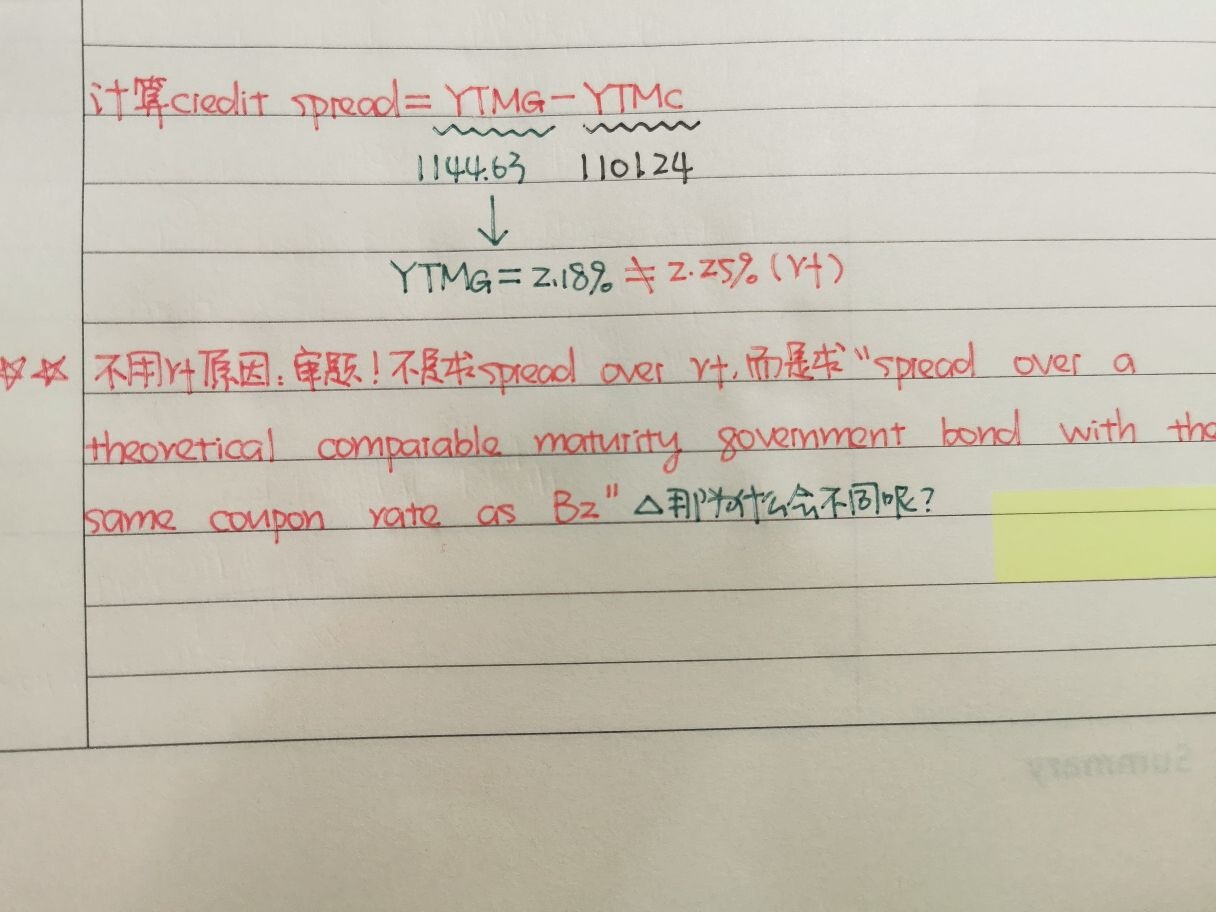 计算credit spread=YTMG-YTMC
1144.63 1101.24
↓
YTMG=2.18%≠2.25%(rf)
☆☆ 不用rf原因:审题!不是求spread over rf,而是求"spread over a
theoretical comparable maturity government bond with the
same coupon rate as B2" △那为什么会不同呢?
Summary